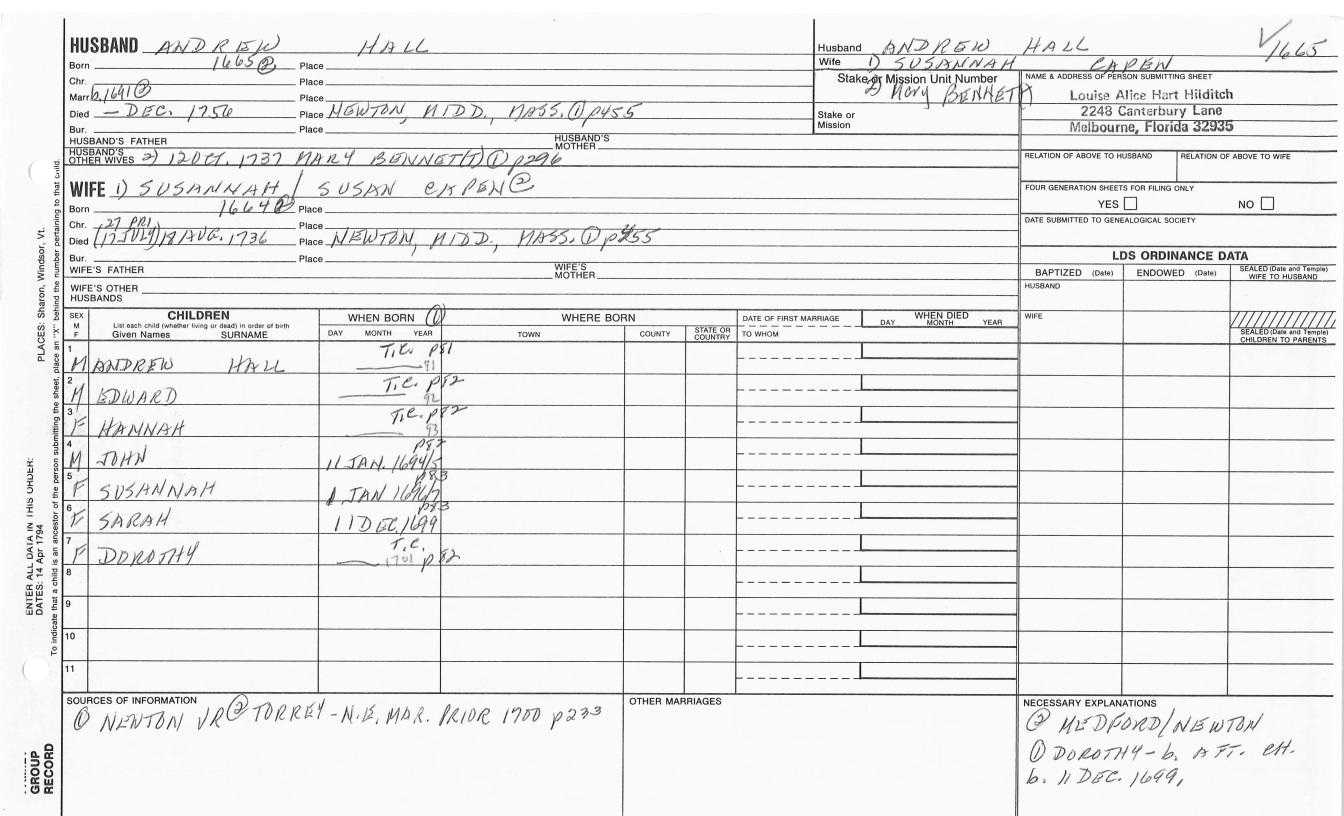 HUSBAND ANDREW HALL
Born 1665 ② Place
Chr. Place
Marr b. 1691 ② Place
Died — DEC. 1756 Place NEWTON, MIDD., MASS. ① p455
Bur. Place
HUSBAND'S FATHER HUSBAND'S MOTHER
HUSBAND'S OTHER WIVES 2) 12 OCT. 1737 MARY BENNET(T) ① p296
WIFE 1) SUSANNAH / SUSAN CAPEN ②
Born 1664 ② Place
Chr. 27 PRI Place
Died (17 JULY) 18 AUG. 1736 Place NEWTON, MIDD., MASS. ① p455
Bur. Place
WIFE'S FATHER WIFE'S MOTHER
WIFE'S OTHER HUSBANDS
Husband ANDREW HALL √1665
Wife 1) SUSANNAH CAPEN
Stake or Mission Unit Number
2) Mary BENNET(T)
Stake or Mission
NAME & ADDRESS OF PERSON SUBMITTING SHEET
Louise Alice Hart Hilditch
2248 Canterbury Lane
Melbourne, Florida 32935
RELATION OF ABOVE TO HUSBAND RELATION OF ABOVE TO WIFE
FOUR GENERATION SHEETS FOR FILING ONLY
YES NO
DATE SUBMITTED TO GENEALOGICAL SOCIETY
LDS ORDINANCE DATA
BAPTIZED (Date) ENDOWED (Date) SEALED (Date and Temple) WIFE TO HUSBAND
HUSBAND
WIFE
SEALED (Date and Temple) CHILDREN TO PARENTS
SEX M F CHILDREN WHEN BORN ① WHERE BORN DATE OF FIRST MARRIAGE WHEN DIED
List each child (whether living or dead) in order of birth
Given Names SURNAME DAY MONTH YEAR TOWN COUNTY STATE OR COUNTRY TO WHOM DAY MONTH YEAR
1 M ANDREW HALL T.C. p81 — 91
2 M EDWARD T.C. p82 — 92
3 F HANNAH T.C. p82 — 93
4 M JOHN 11 JAN. 1694/5 p82
5 F SUSANNAH 1 JAN 1696/7 p83
6 F SARAH 11 DEC. 1699 p83
7 F DOROTHY T.C. — 1701 p82
8
9
10
11
SOURCES OF INFORMATION
① NEWTON VR ② TORREY - N.E. MAR. PRIOR 1700 p233
OTHER MARRIAGES
NECESSARY EXPLANATIONS
② MEDFORD/NEWTON
① DOROTHY - b. AFT. CH.
b. 11 DEC. 1699,
ENTER ALL DATA IN THIS ORDER:
DATES: 14 Apr 1794 PLACES: Sharon, Windsor, Vt.
To indicate that a child is an ancestor of the person submitting the sheet, place an "X" behind the number pertaining to that child.
GROUP
RECORD